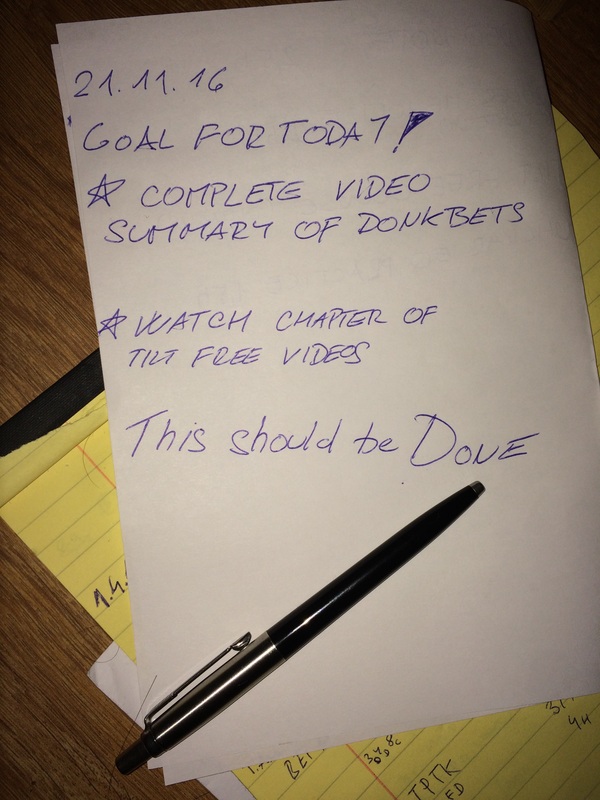 21.11.16
GOAL FOR TODAY!
☆ COMPLETE VIDEO
SUMMARY OF DONKBETS
☆ WATCH CHAPTER OF
TILT FREE VIDEOS
This should be DONE
1.4.
BET
3♦ 8c
TPTK
4H